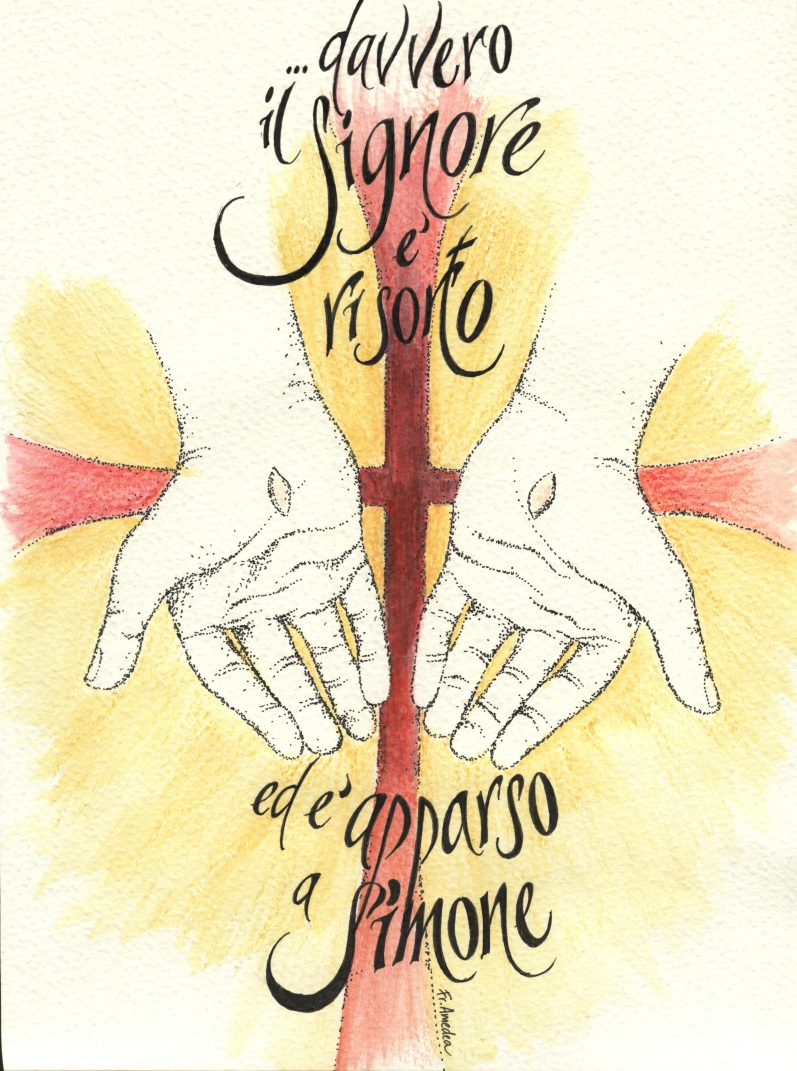 ...davvero
il Signore
e'
risorto
ed e' apparso
a Simone
Fr. Amedea